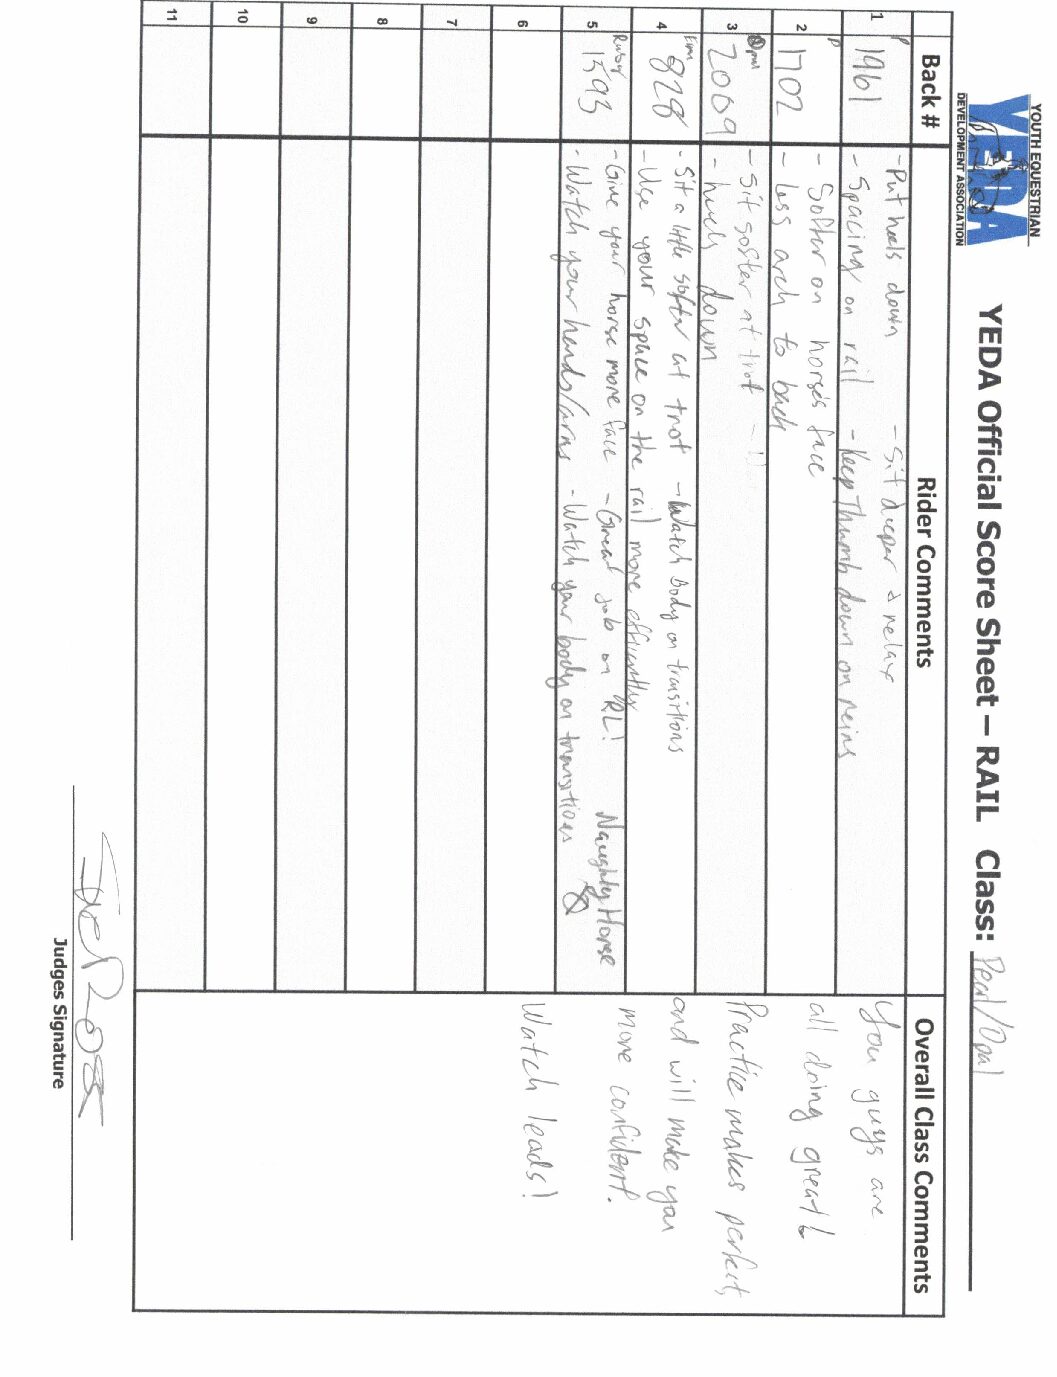 YOUTH EQUESTRIAN
YEDA
DEVELOPMENT ASSOCIATION
YEDA Official Score Sheet – RAIL Class: Pearl/Opal
Back #
Rider Comments
Overall Class Comments
1
P
1961
-Put heels down - Sit deeper & relax
- Spacing on rail - Keep Thumb down on reins
2
P
1702
- Softer on horse's face
- less arch to back
3
Opal
2009
- Sit softer at trot
- heels down
4
Em
828
- Sit a little softer at trot - Watch Body on transitions
- Use your space on the rail more efficiently
5
Ruby
1593
- Give your horse more face - Great job on RL! Naughty Horse
- Watch your hands/arms - Watch your body on transitions
6
7
8
9
10
11
You guys are
all doing great!
Practice makes perfect,
and will make you
more confident.
Watch leads!
Judges Signature